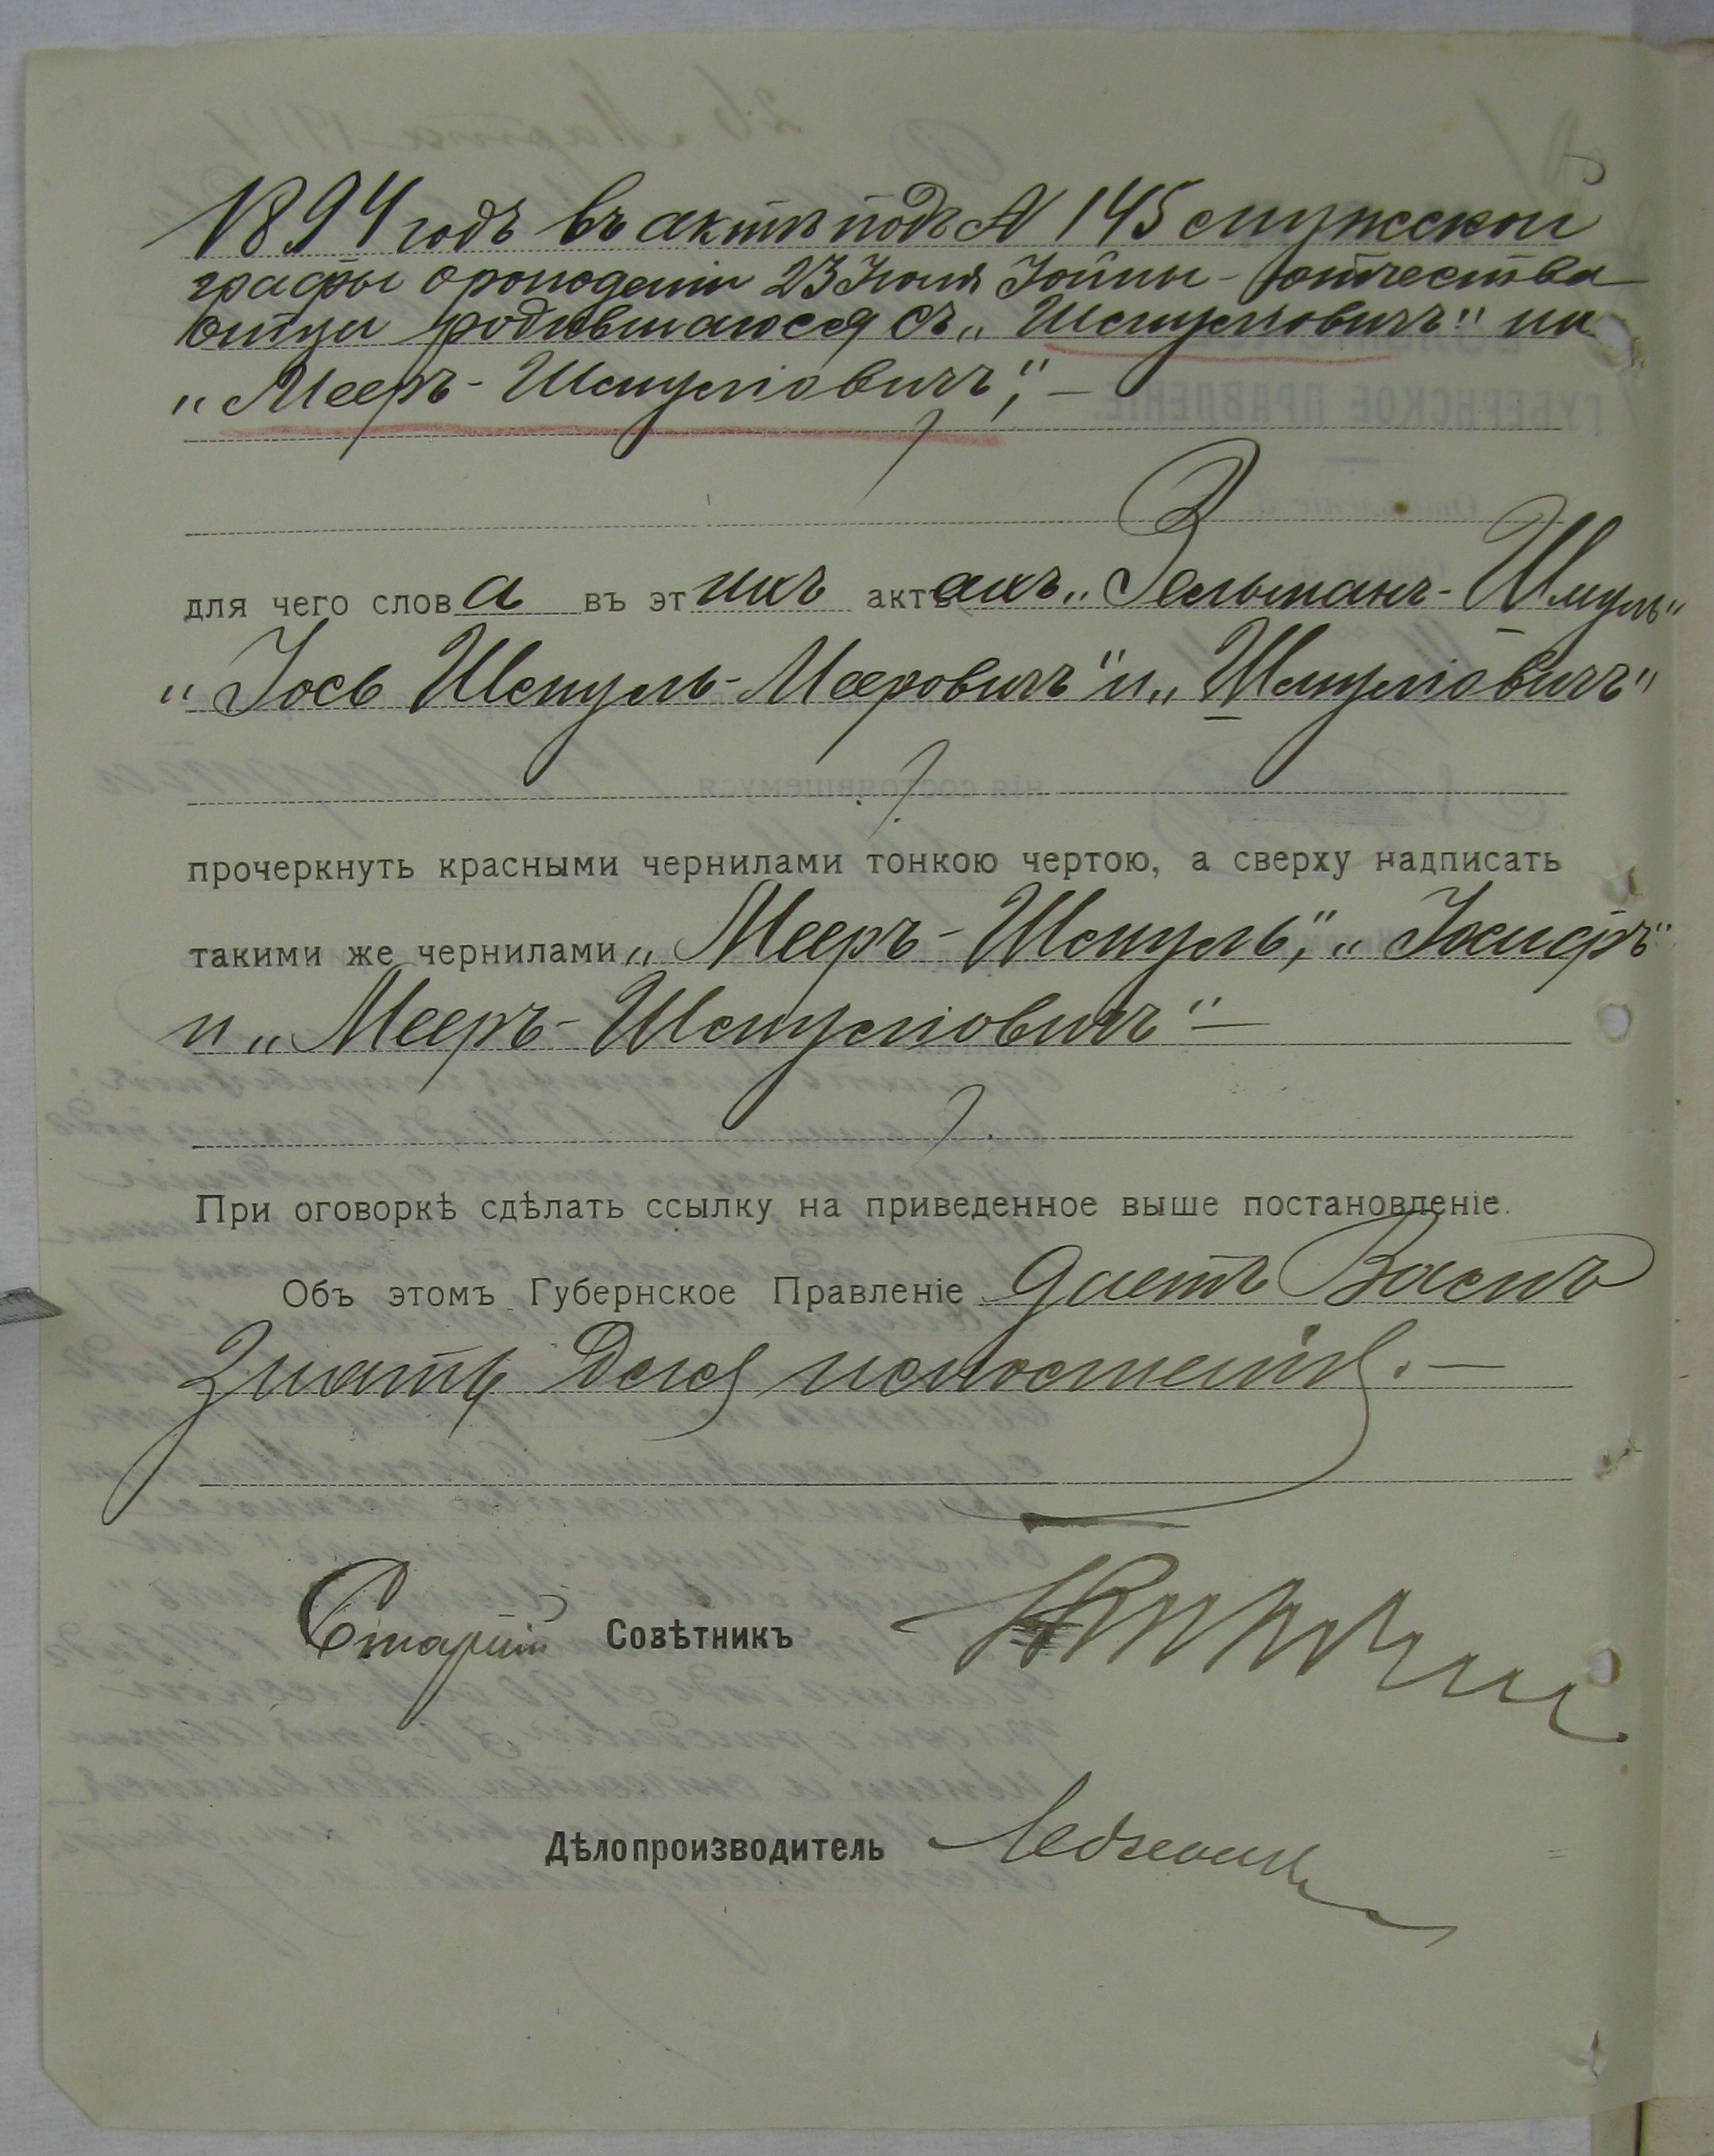 1894 годъ въ актѣ подъ № 145 мужской
графы о рожденіи 23 Іюля Іойны - отчества
отца родившагося съ „Шмулёвичъ" на
„Мееръ-Шмулёвичъ",—
для чего слова въ этихъ актахъ „Зельманъ-Шмуль"
„Іось Шмуль-Мееровичъ" и „Шмулёвичъ"
прочеркнуть красными чернилами тонкою чертою, а сверху надписать
такими же чернилами „Мееръ-Шмуль", „Іосифъ"
и „Мееръ-Шмулёвичъ"—
При оговоркѣ сдѣлать ссылку на приведенное выше постановленіе.
Объ этомъ Губернское Правленіе даетъ Вамъ
знать для исполненія.—
Старшій Совѣтникъ
Дѣлопроизводитель